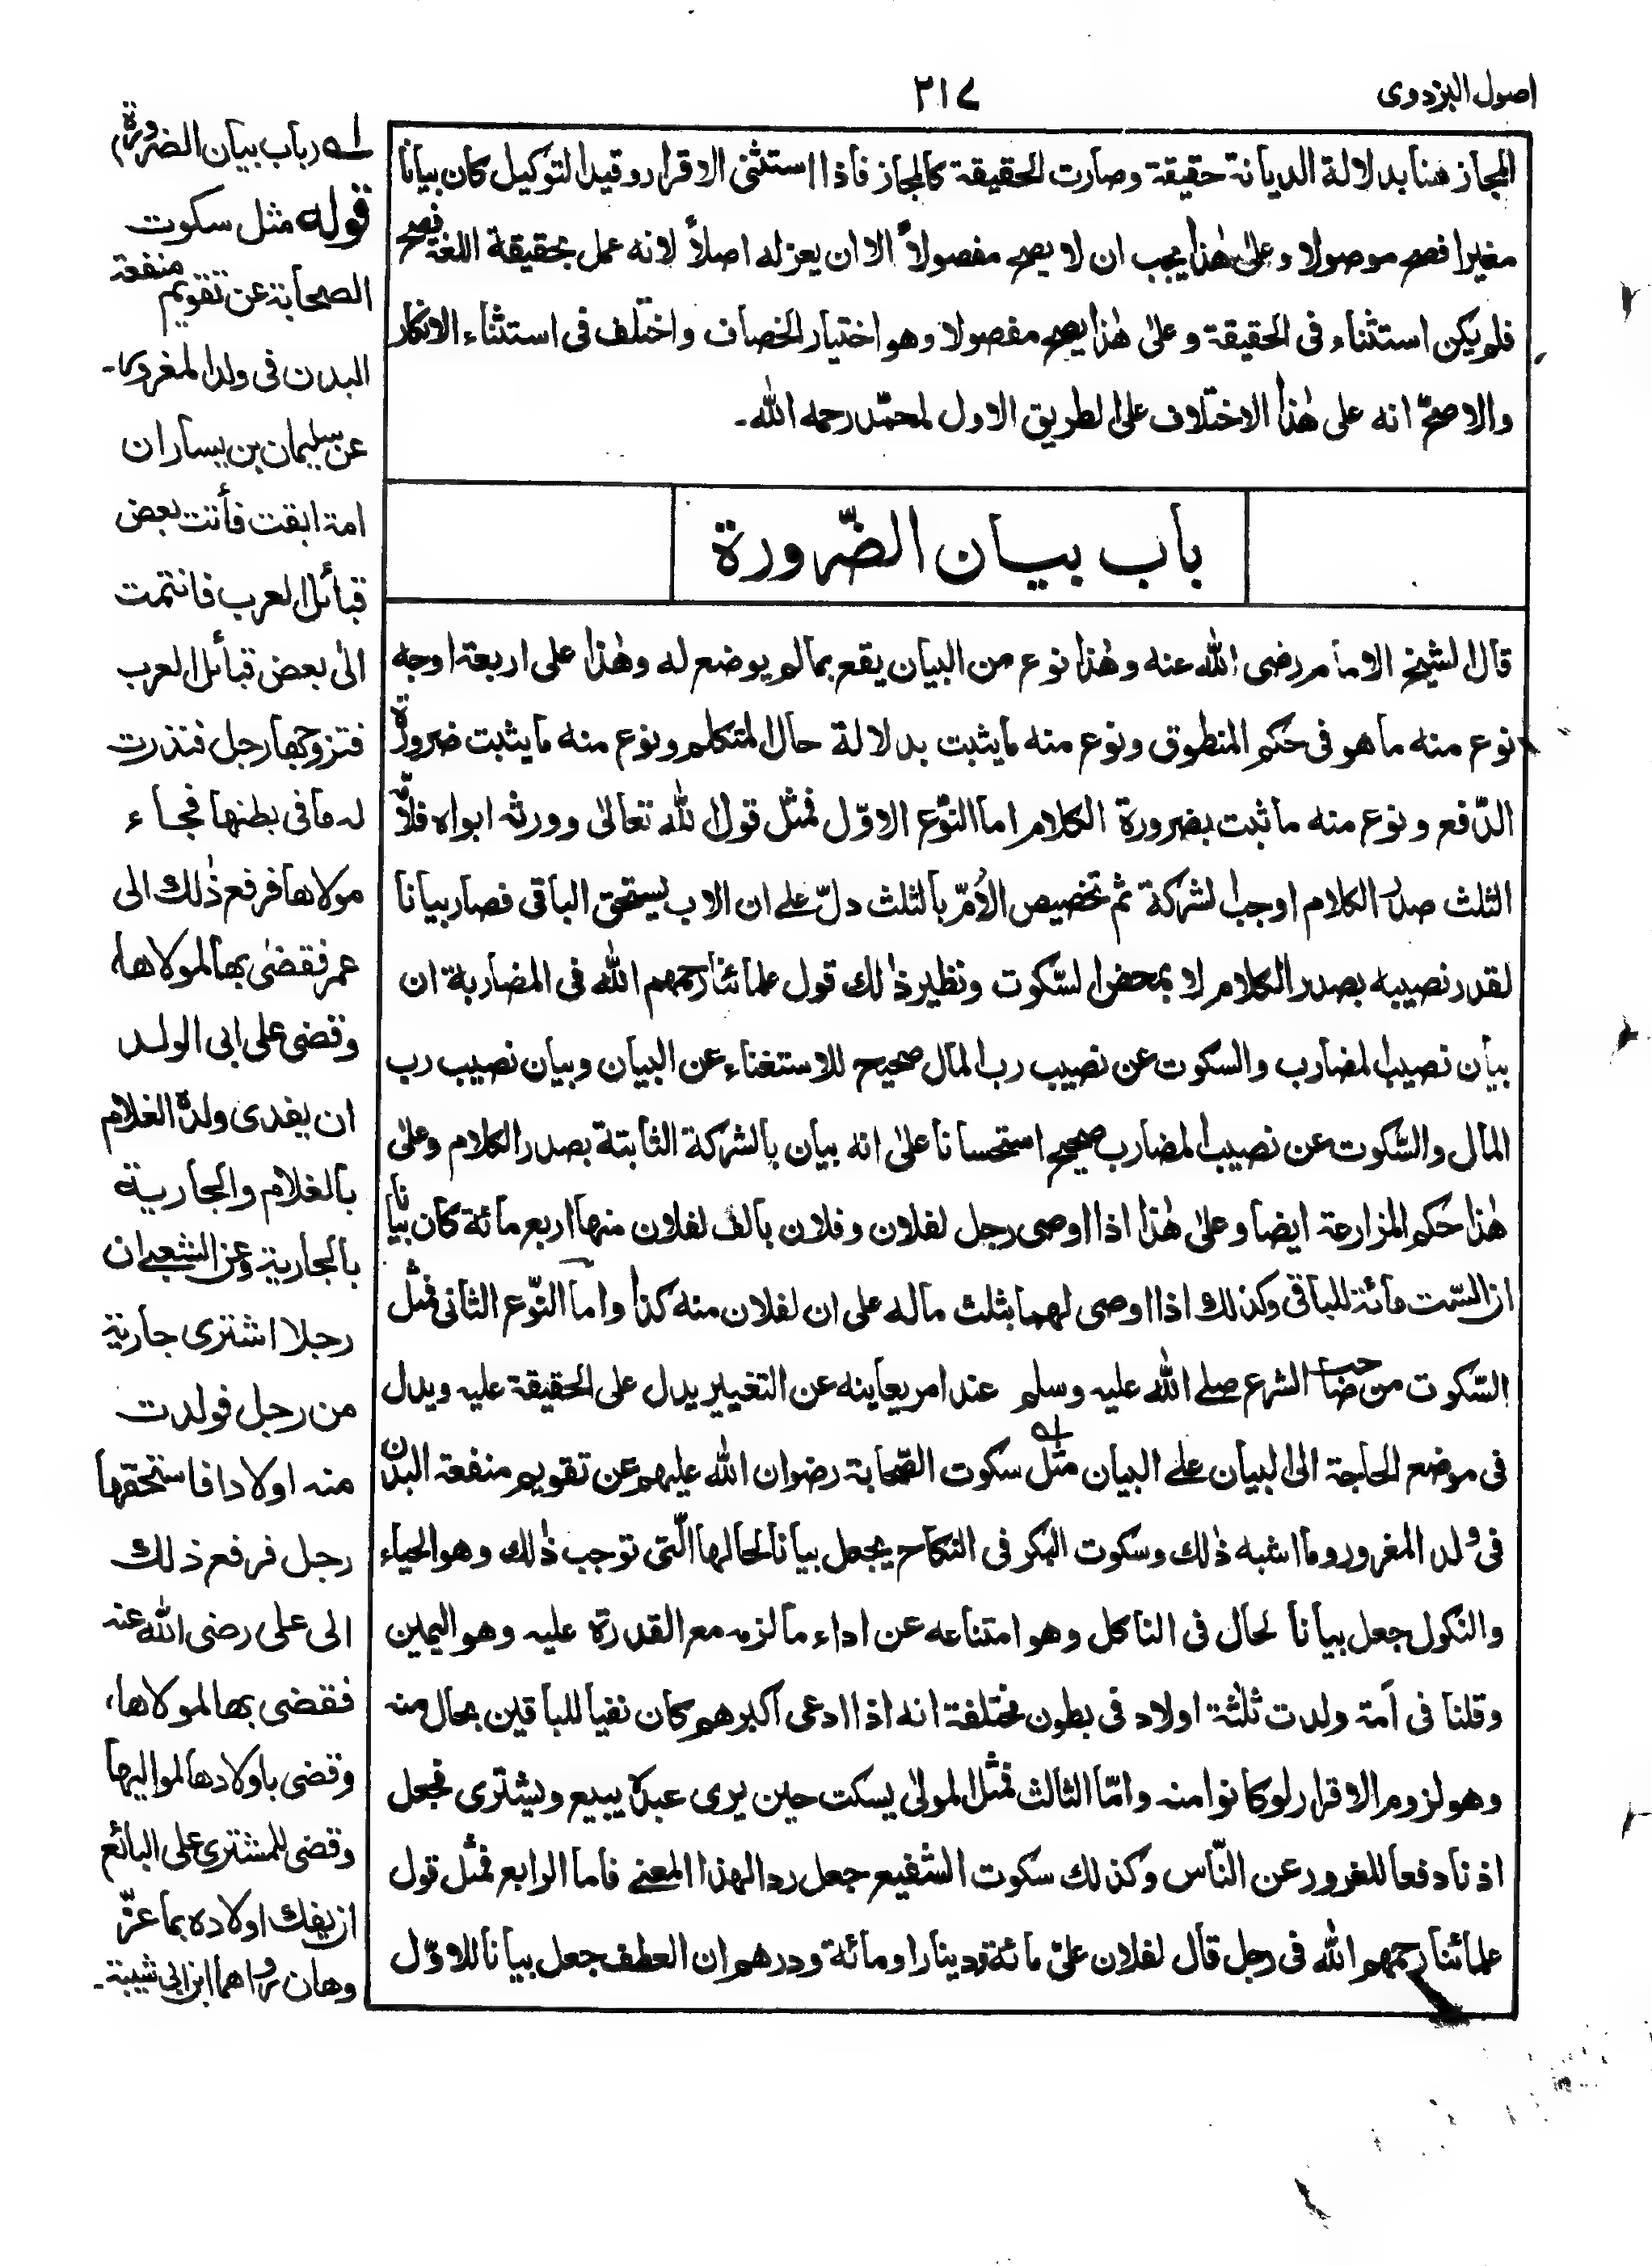 اصول البزدوى
٢١٧
المجاز هنا بدلالة الديانة حقيقة وصارت الحقيقة كالمجاز فاذا استثنى الاقرار وقيد التوكيل كان بيانا
مغيرا فصح موصولا وعلى هٰذا يجب ان لا يصح مفصولاً الا ان يعزله اصلاً لانه عمل بحقيقة اللغة فصح
فلم يكن استثناء فى الحقيقة وعلى هٰذا يصح مفصولا وهو اختيار الخصاف واختلف فى استثناء الانكار
والاصحّ انه على هٰذا الاختلاف على الطريق الاول لمحمّد رحمه الله۔
باب بيان الضّرورة
قال الشيخ الامام رضى الله عنه وهٰذا نوع من البيان يقع بما لم يوضع له وهٰذا على اربعة اوجه
نوع منه ما هو فى حكم المنطوق ونوع منه ما يثبت بدلالة حال المتكلم ونوع منه ما يثبت ضرورة
الدّفع ونوع منه ما ثبت بضرورة الكلام اما النّوع الاوّل فمثل قول الله تعالىٰ وورثه ابواه فلأمّه
الثلث صدر الكلام اوجب الشركة ثم تخصيص الأمّ بالثلث دلّ على ان الاب يستحق الباقى فصار بيانا
لقدر نصيبه بصدر الكلام لا بمحض السّكوت ونظير ذٰلك قول علمائنا رحمهم الله فى المضاربة ان
بيان نصيب المضارب والسكوت عن نصيب رب المال صحيح للاستغناء عن البيان وبيان نصيب رب
المال والسّكوت عن نصيب المضارب صحيح استحسانا على انه بيان بالشركة الثابتة بصدر الكلام وعلى
هٰذا حكم المزارعة ايضا وعلى هٰذا اذا اوصى رجل لفلان وفلان بالف لفلان منها اربع مائة كان بيانا
ان السّت مائة للباقى وكذلك اذا اوصى لهما بثلث ماله على ان لفلان منه كذا واما النّوع الثانى فمثل
السّكوت من صاحب الشرع صلى الله عليه وسلم عند امر يعاينه عن التغيير يدل على الحقيقة عليه ويدل
فى موضع الحاجة الى البيان على البيان مثل سكوت الصّحابة رضوان الله عليهم عن تقويم منفعة البدن
فى ولد المغرور وما اشبه ذٰلك وسكوت البكر فى النكاح يجعل بيانا لحالها الّتى توجب ذٰلك وهو الحياء
والنكول جعل بيانا لحال فى الناكل وهو امتناعه عن اداء ما لزمه مع القدرة عليه وهو اليمين
وقلنا فى أمة ولدت ثلٰثة اولاد فى بطون مختلفة انه اذا ادعى اكبرهم كان نفيا للباقين بحال منه
وهو لزوم الاقرار لو كانوا منه وامّا الثالث فمثل المولى يسكت حين يرى عبده يبيع ويشترى فجعل
اذنا دفعا للغرور عن النّاس وكذلك سكوت الشفيع جعل ردا لهذا المعنى فاما الرابع فمثل قول
علمائنا رحمهم الله فى رجل قال لفلان علىّ مائة ودينار او مائة ودرهم ان العطف جعل بيانا للاوّل
لـه (باب بيان الضرورة)
قوله مثل سكوت
الصحابة عن تقويم منفعة
البدن فى ولد المغرور۔
عن سليمان بن يسار ان
امة ابقت فأتت بعض
قبائل العرب فانتمت
الى بعض قبائل العرب
فتزوجها رجل فنذرت
له ما فى بطنها فجاء
مولاها فرفع ذٰلك الى
عمر فقضى بها لمولاها،
وقضى على ابى الولد
ان يفدى ولده الغلام
بالغلام والجارية
بالجارية وعن الشعبى ان
رجلا اشترى جارية
من رجل فولدت
منه اولادا فاستحقها
رجل فرفع ذلك
الى على رضى الله عنه
فقضى بها لمولاها،
وقضى باولادها لمواليها
وقضى للمشترى على البائع
ان يفك اولاده بما عزّ
وهان رواهما ابن ابى شيبة۔